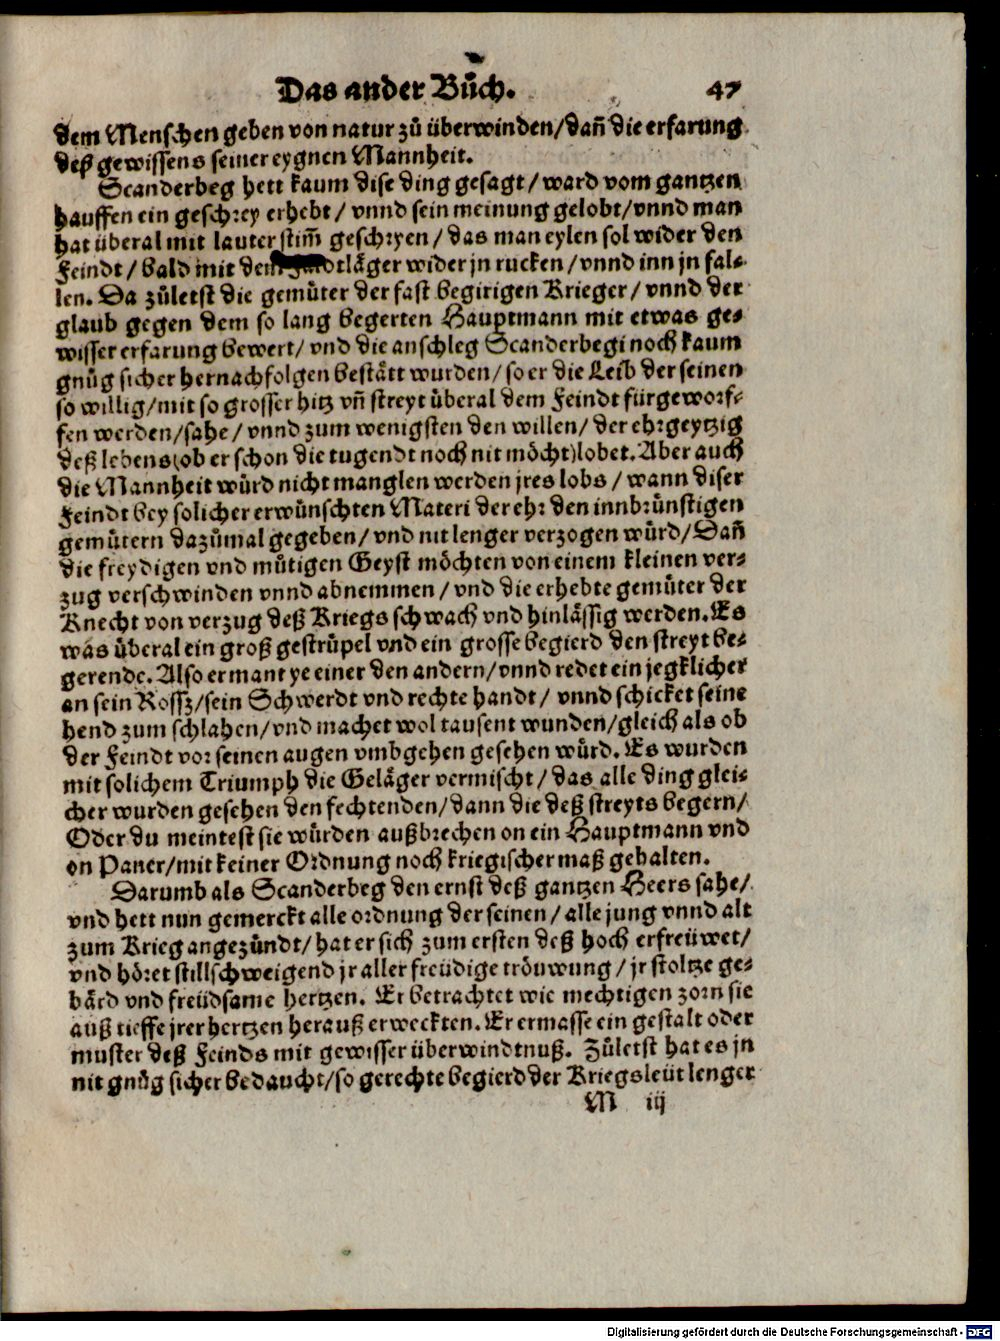 Das ander Buͦch. 47
dem Menschen geben von natur zuͦ überwinden/dañ die erfarung
deß gewissens seiner eygnen Mannheit.
Scanderbeg hett kaum dise ding gesagt/ward vom gantzen
hauffen ein geschrey erhebt/vnnd sein meinung gelobt/vnnd man
hat überal mit lauter stim̃ geschryen/das man eylen sol wider den
Feindt/bald mit dem tläger wider jn rucken/vnnd inn jn fal⸗
len. Da zuͦletst die gemüter der fast begirigen Krieger/vnnd der
glaub gegen dem so lang begerten Hauptmann mit etwas ge⸗
wisser erfarung bewert/vnd die anschleg Scanderbegi noch kaum
gnuͦg sicher hernachfolgen bestätt wurden/so er die Leib der seinen
so willig/mit so grosser hitz vñ streyt überal dem Feindt fürgeworf⸗
fen werden/sahe/vnnd zum wenigsten den willen/der ehrgeytzig
deß lebens(ob er schon die tugendt noch nit möcht)lobet. Aber auch
die Mannheit würd nicht manglen werden jres lobs/wann diser
Feindt bey solicher erwünschten Materi der ehr den innbrünstigen
gemütern dazuͦmal gegeben/vnd nit lenger verzogen würd/Dañ
die freydigen vnd mütigen Geyst möchten von einem kleinen ver⸗
zug verschwinden vnnd abnemmen/vnd die erhebte gemüter der
Knecht von verzug deß Kriegs schwach vnd hinlässig werden. Es
was überal ein groß gestrüpel vnd ein grosse begierd den streyt be⸗
gerende. Also ermant ye einer den andern/vnnd redet ein jegklicher
an sein Rossz/sein Schwerdt vnd rechte handt/vnnd schicket seine
hend zum schlahen/vnd machet wol tausent wunden/gleich als ob
der Feindt vor seinen augen vmbgehen gesehen würd. Es wurden
mit solichem Triumph die Geläger vermischt/das alle ding glei⸗
cher wurden gesehen den fechtenden/dann die deß streyts begern/
Oder du meintest sie würden außbrechen on ein Hauptmann vnd
on Paner/mit keiner Ordnung noch kriegischer maß gehalten.
Darumb als Scanderbeg den ernst deß gantzen Heers sahe/
vnd hett nun gemerckt alle ordnung der seinen/alle jung vnnd alt
zum Krieg angezündt/hat er sich zum ersten deß hoch erfreüwet/
vnd höret stillschweigend jr aller freüdige tröuwung/jr stoltze ge⸗
bärd vnd freüdsame hertzen. Er betrachtet wie mechtigen zorn sie
auß tieffe jrer hertzen herauß erweckten. Er ermasse ein gestalt oder
muster deß Feinds mit gewisser überwindtnuß. Zuͦletst hat es jn
nit gnuͦg sicher bedaucht/so gerechte begierd der Kriegsleüt lenger
M iij
Digitalisierung gefördert durch die Deutsche Forschungsgemeinschaft - DFG